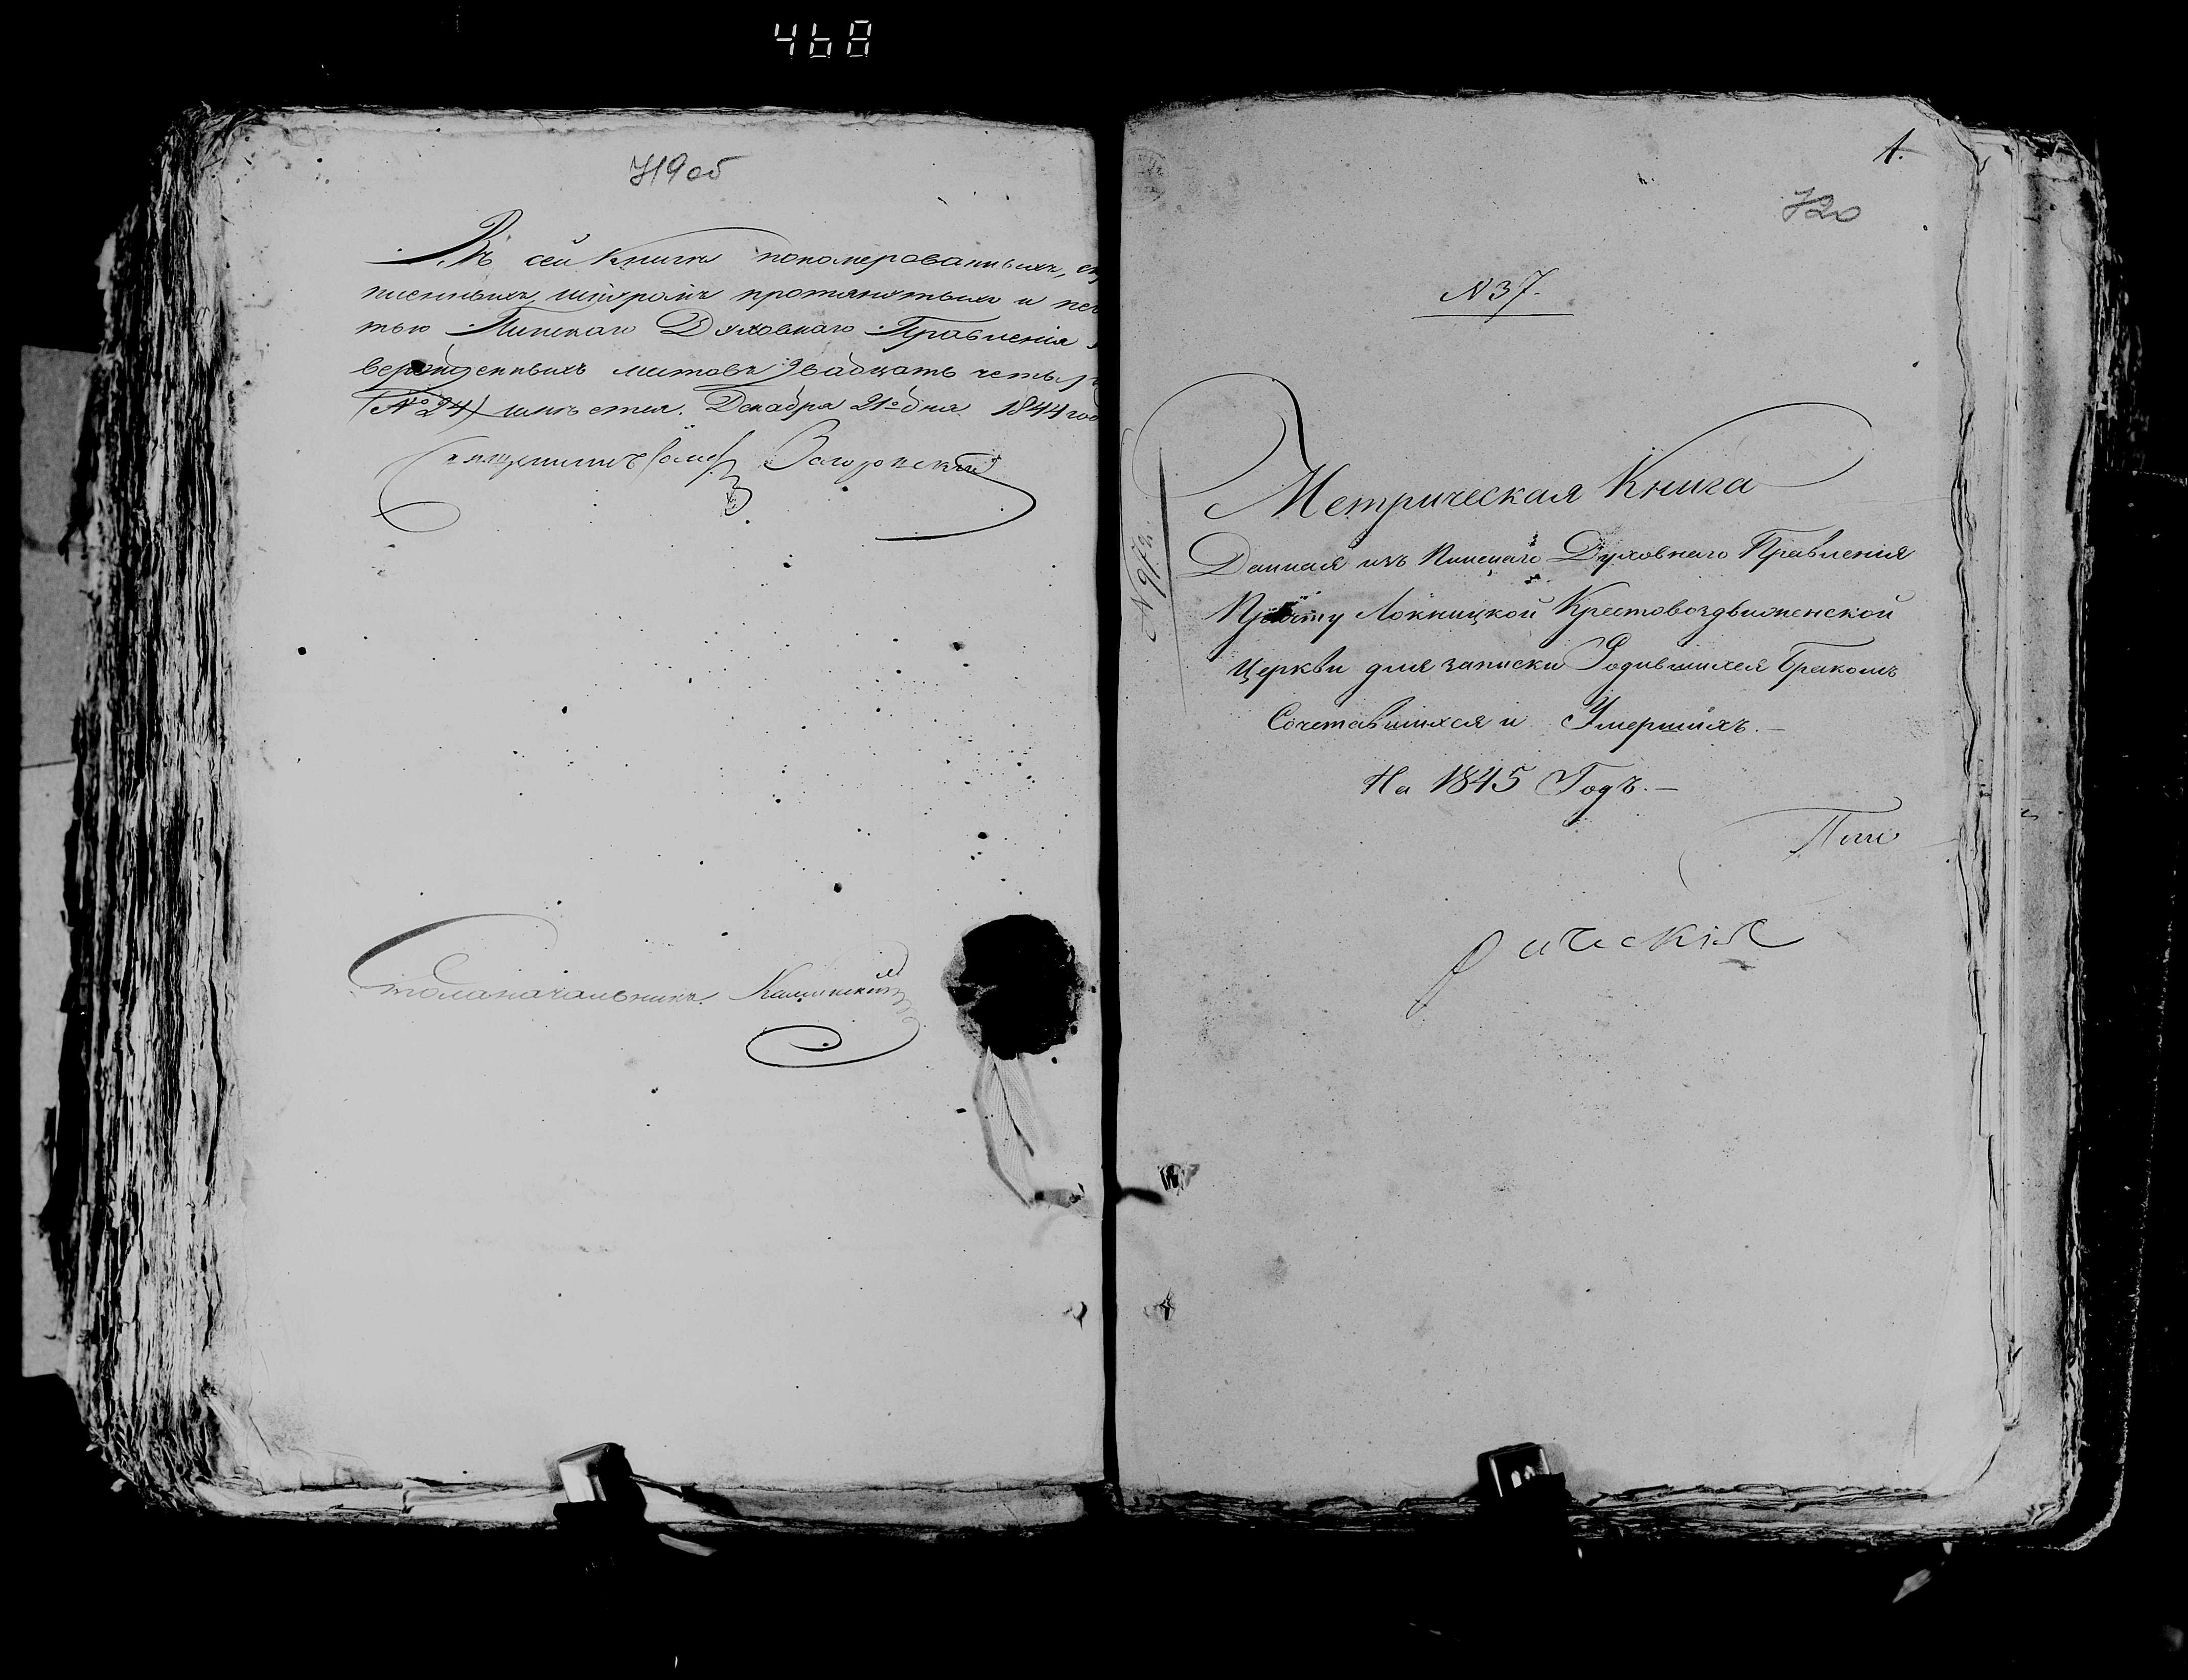 468
719об
Въ сей Книгѣ пономерованныхъ,
шнуромъ протянутыхъ и печ
тью Пинскаго Духовнаго Правленія
вержденныхъ листовъ двадцать четыр
(№ 24) имѣется. Декабря 21го дня 1844 год
Священникъ Загоровскій
Столоначальникъ Калинскій
1.
720
N 37.
N 972.
Метрическая Книга
Данная изъ Пинскаго Духовнаго Правленія
Причту Локницкой Крестовоздвиженской
Церкви для записки Родившихся Бракомъ
Сочетавшихся и Умершихъ.—
На 1845 Годъ.—
Пин